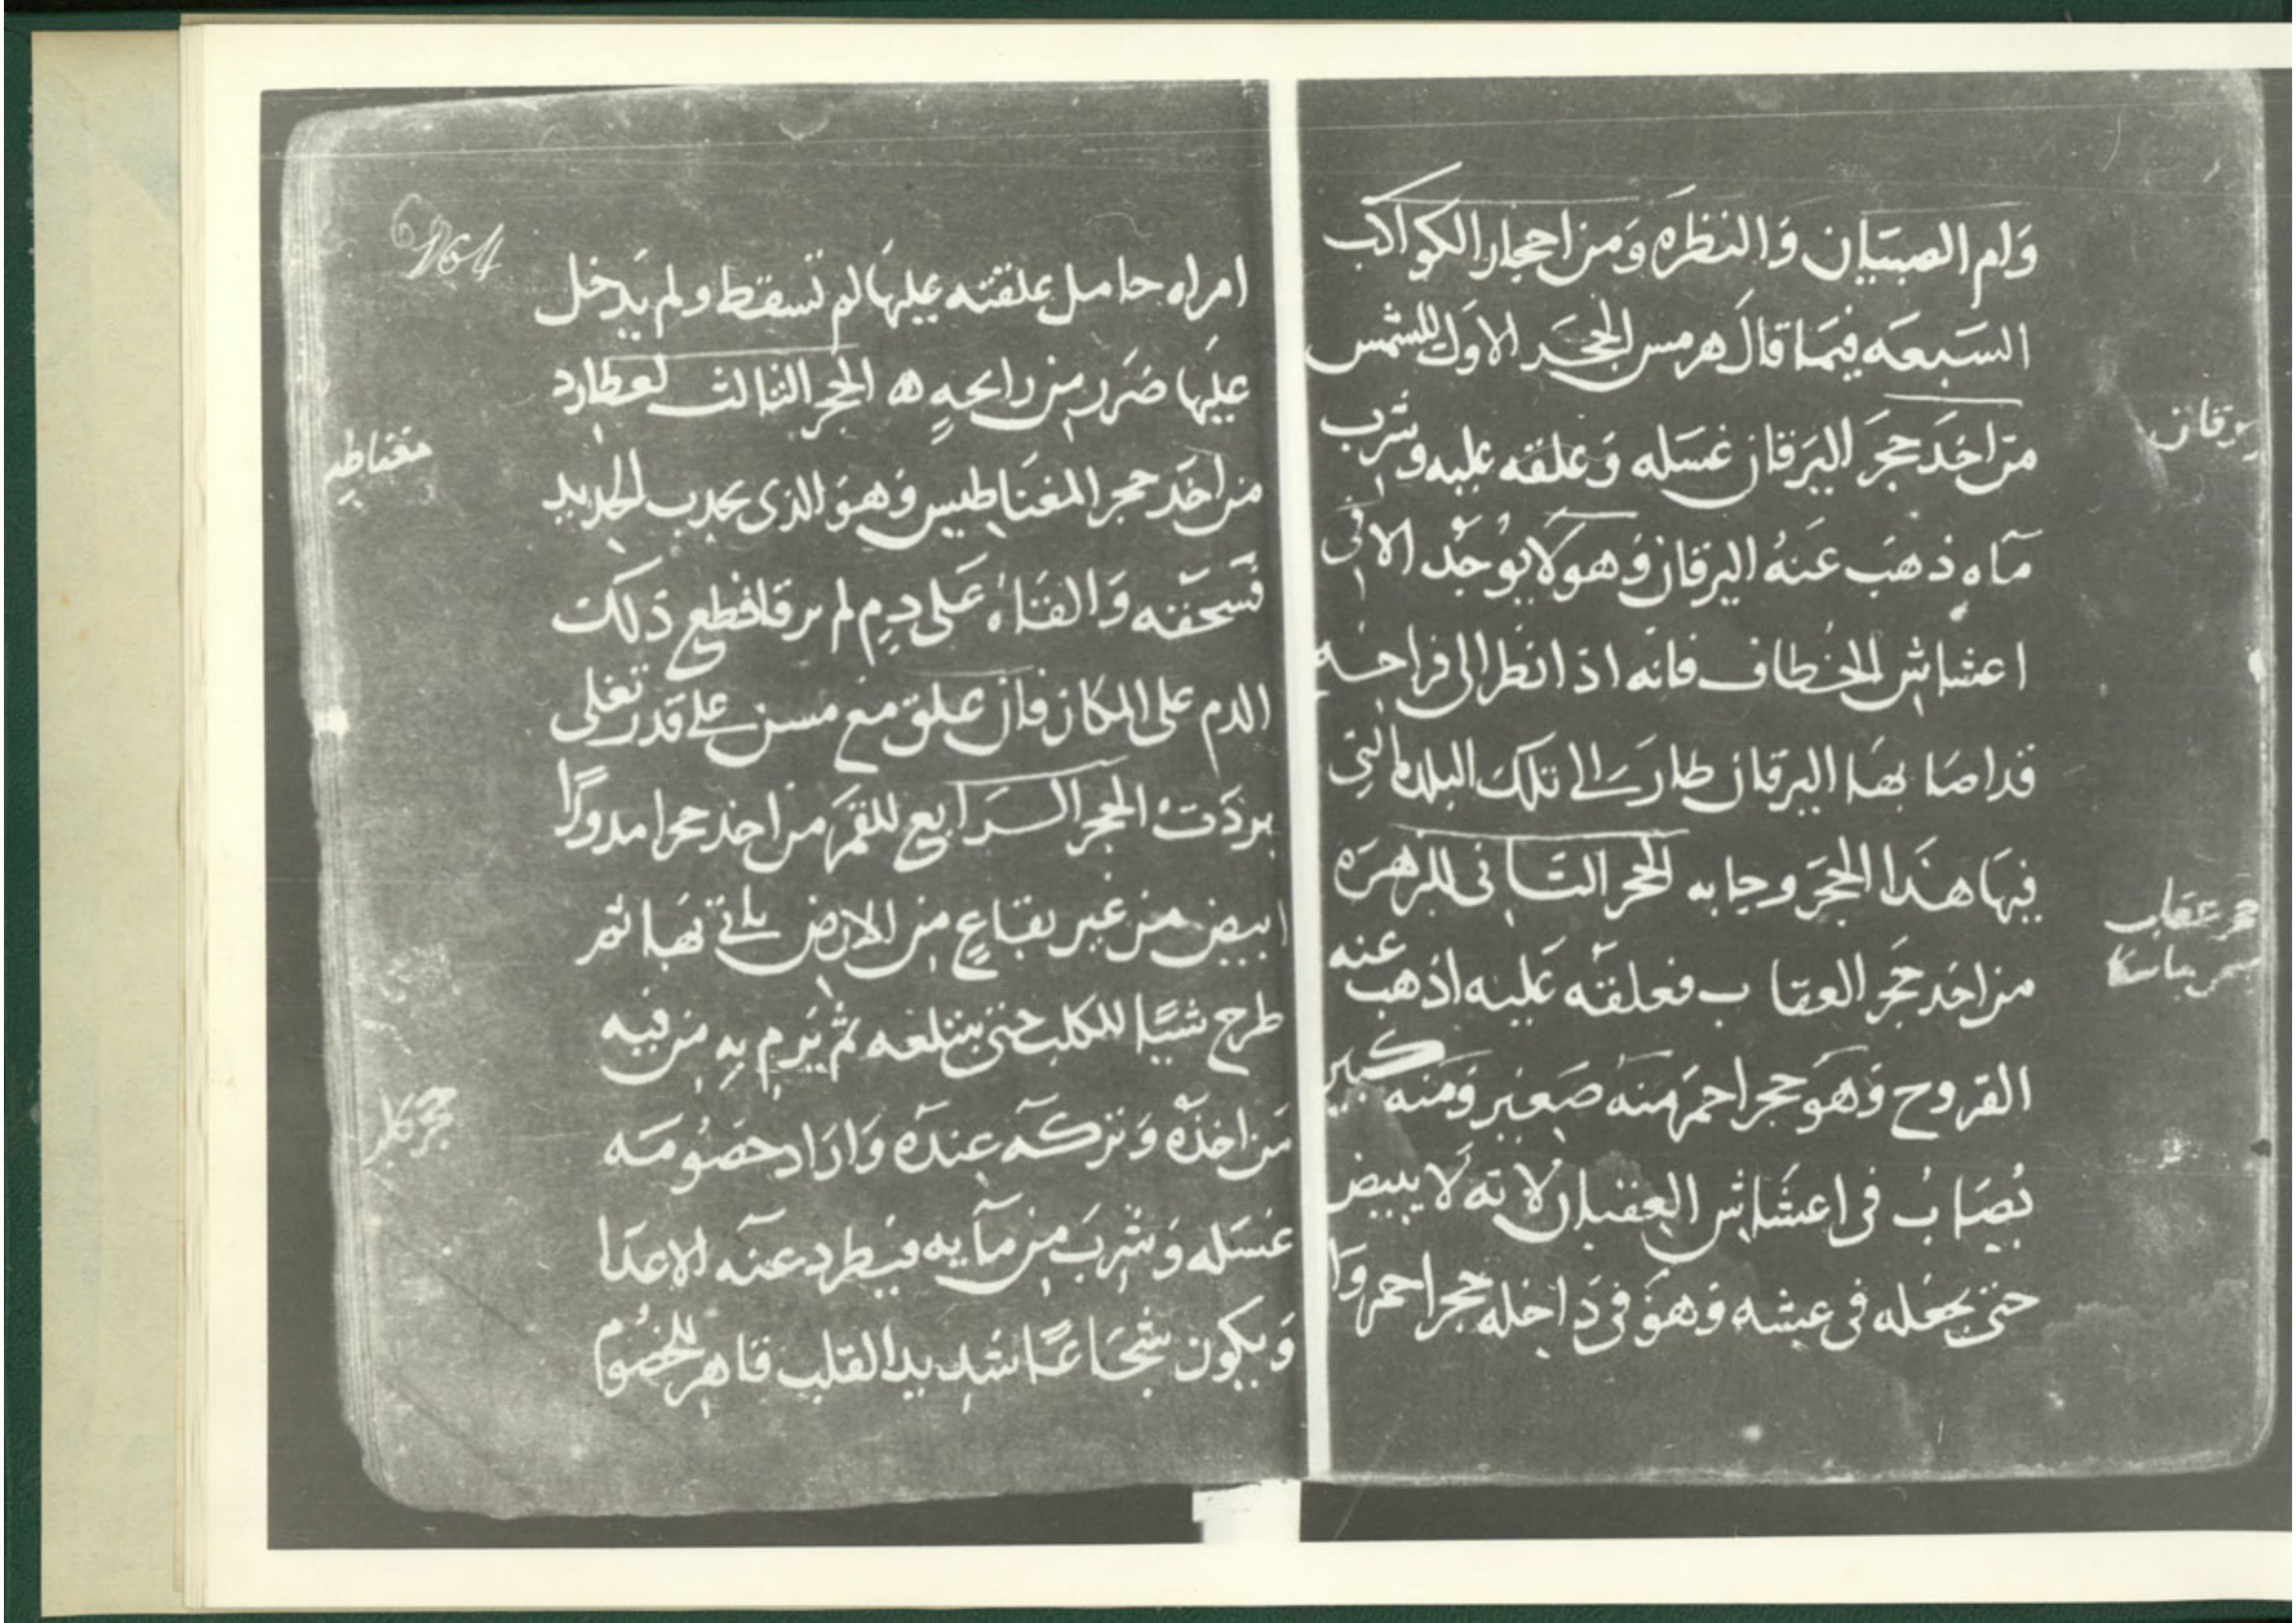 وام الصبيان والنظره ومن احجار الكواكب
السبعه فيما قال هرمس الحجر الاول للشمس
من اخذ حجر اليرقان غسله وعلقه عليه وشرب
ماه ذهب عنه اليرقان وهو لا يوجد الا فى
اعشاش الخطاف فانه اذا نظر الى فراخه
قد اصابها اليرقان طار الى تلك البلد التى
فيها هذا الحجر وجابه الحجر الثانى للزهره
من اخذ حجر العقاب فعلقه عليه اذهب عنه
القروح وهو حجر احمر منه صغير ومنه كبير
يصاب فى اعشاش العقبان لانه لا يبيض
حتى يجعله فى عشه وهو فى داخله حجر احمر وا
يرقان
حجر عقاب
امراه حامل علقته عليها لم تسقط ولم يدخل
عليها ضرر من رايحه ه الحجر الثالث لعطارد
من اخذ حجر المغناطيس وهو الذى يجدب الحديد
فسحقه والقاه على دم لم يرقا قطع ذلك
الدم على المكان فان علق مع مسن على قدر تغلى
بردت الحجر الرابع للقمر من اخذ حجرا مدورا
ابيض من غير بقاع من الارض ثم
طرح شيا للكلب حتى يبتلعه ثم يرم به من فيه
من اخذه وتركه عنده واراد خصومه
غسله وشرب من مآيه فيطرد عنه الاعدا
ويكون شجاعا شديد القلب قاهر للخصوم
مغناطيس
حجر كلب